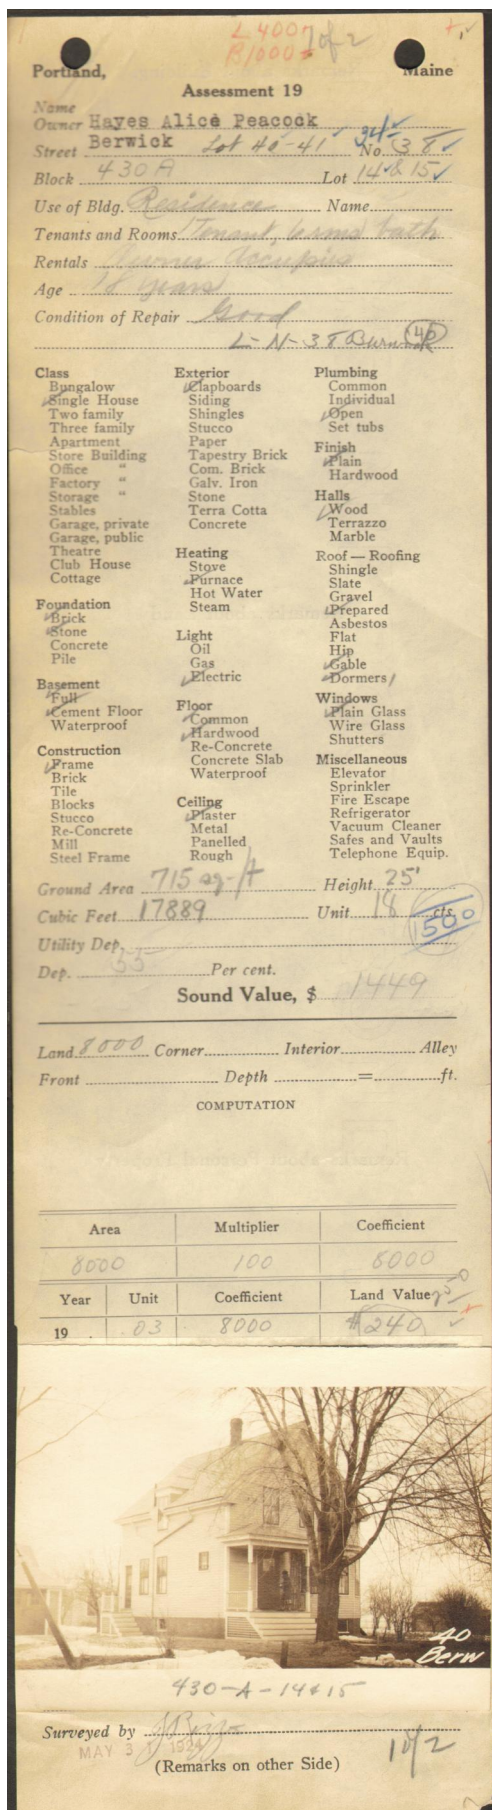 L 400
B 1000
1 of 2
Portland, Maine
Assessment 19
Name
Owner Hayes Alice Peacock
Street Berwick Lot 40-41 No. 38
34-
Block 430A Lot 14 & 15
Use of Bldg. Residence Name
Tenants and Rooms Tenant, 6 rms bath
Rentals Owner Occupies
Age years
Condition of Repair Good
L-N-38 Burwick 40
Class
Bungalow
Single House
Two family
Three family
Apartment
Store Building
Office "
Factory "
Storage "
Stables
Garage, private
Garage, public
Theatre
Club House
Cottage
Foundation
Brick
Stone
Concrete
Pile
Basement
Full
Cement Floor
Waterproof
Construction
Frame
Brick
Tile
Blocks
Stucco
Re-Concrete
Mill
Steel Frame
Exterior
Clapboards
Siding
Shingles
Stucco
Paper
Tapestry Brick
Com. Brick
Galv. Iron
Stone
Terra Cotta
Concrete
Heating
Stove
Furnace
Hot Water
Steam
Light
Oil
Gas
Electric
Floor
Common
Hardwood
Re-Concrete
Concrete Slab
Waterproof
Ceiling
Plaster
Metal
Panelled
Rough
Plumbing
Common
Individual
Open
Set tubs
Finish
Plain
Hardwood
Halls
Wood
Terrazzo
Marble
Roof — Roofing
Shingle
Slate
Gravel
Prepared
Asbestos
Flat
Hip
Gable
Dormers 1
Windows
Plain Glass
Wire Glass
Shutters
Miscellaneous
Elevator
Sprinkler
Fire Escape
Refrigerator
Vacuum Cleaner
Safes and Vaults
Telephone Equip.
Ground Area 715 sq-ft Height 25'
Cubic Feet 17889 Unit 18 cts
1500
Utility Dep.
Dep. 55 Per cent.
Sound Value, $ 1449
Land 8000 Corner Interior Alley
Front Depth = ft.
COMPUTATION
Area Multiplier Coefficient
8000 100 8000
Year Unit Coefficient Land Value 250
19 .03 8000 $240
40
Berw
430-A-14&15
Surveyed by
MAY 3 1924
1 of 2
(Remarks on other Side)